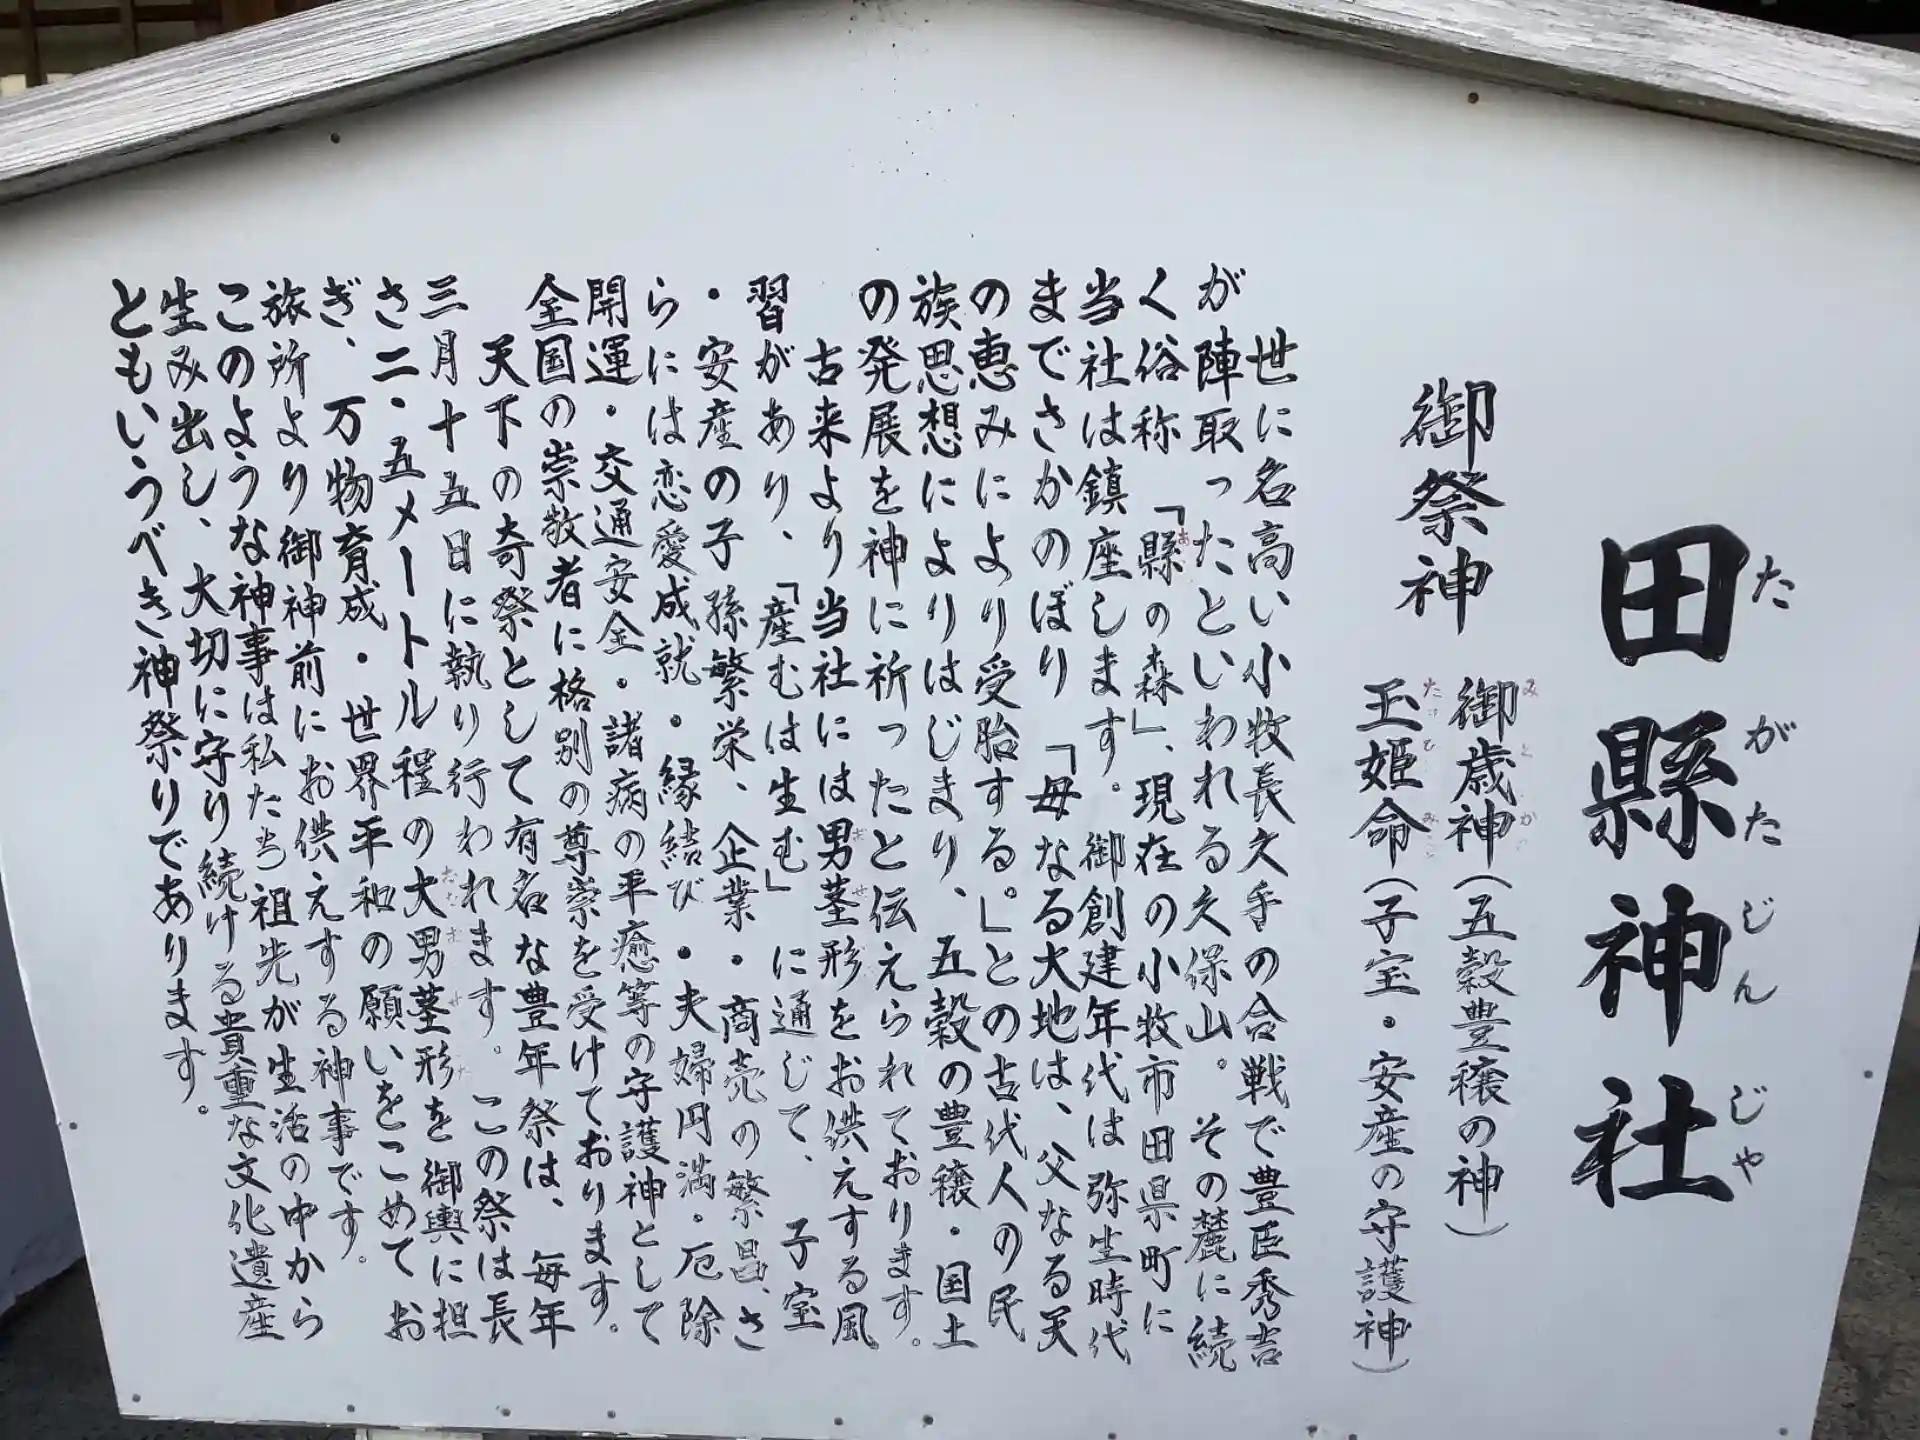 田縣神社
たがたじんじゃ
御祭神
御歳神(五穀豊穣の神)
玉姫命(子宝・安産の守護神)
世に名高い小牧長久手の合戦で豊臣秀吉
が陣取ったといわれる久保山。その麓に続
く俗称「縣の森」、現在の小牧市田県町に
当社は鎮座します。御創建年代は弥生時代
までさかのぼり「母なる大地は、父なる天
の恵みにより受胎する。」との古代人の民
族思想によりはじまり、五穀の豊穣・国土
の発展を神に祈ったと伝えられております。
古来より当社には男茎形をお供えする風
習があり、「産むは生む」に通じて、子宝
・安産の子孫繁栄、企業・商売の繁昌、さ
らには恋愛成就・縁結び・夫婦円満・厄除
開運・交通安全・諸病の平癒等の守護神として
全国の崇敬者に格別の尊崇を受けております。
天下の奇祭として有名な豊年祭は、毎年
三月十五日に執り行われます。この祭は長
さ二・五メートル程の大男茎形を御輿に担
ぎ、万物育成・世界平和の願いをこめてお
旅所より御神前にお供えする神事です。
このような神事は私たち祖先が生活の中から
生み出し、大切に守り続ける貴重な文化遺産
ともいうべき神祭りであります。